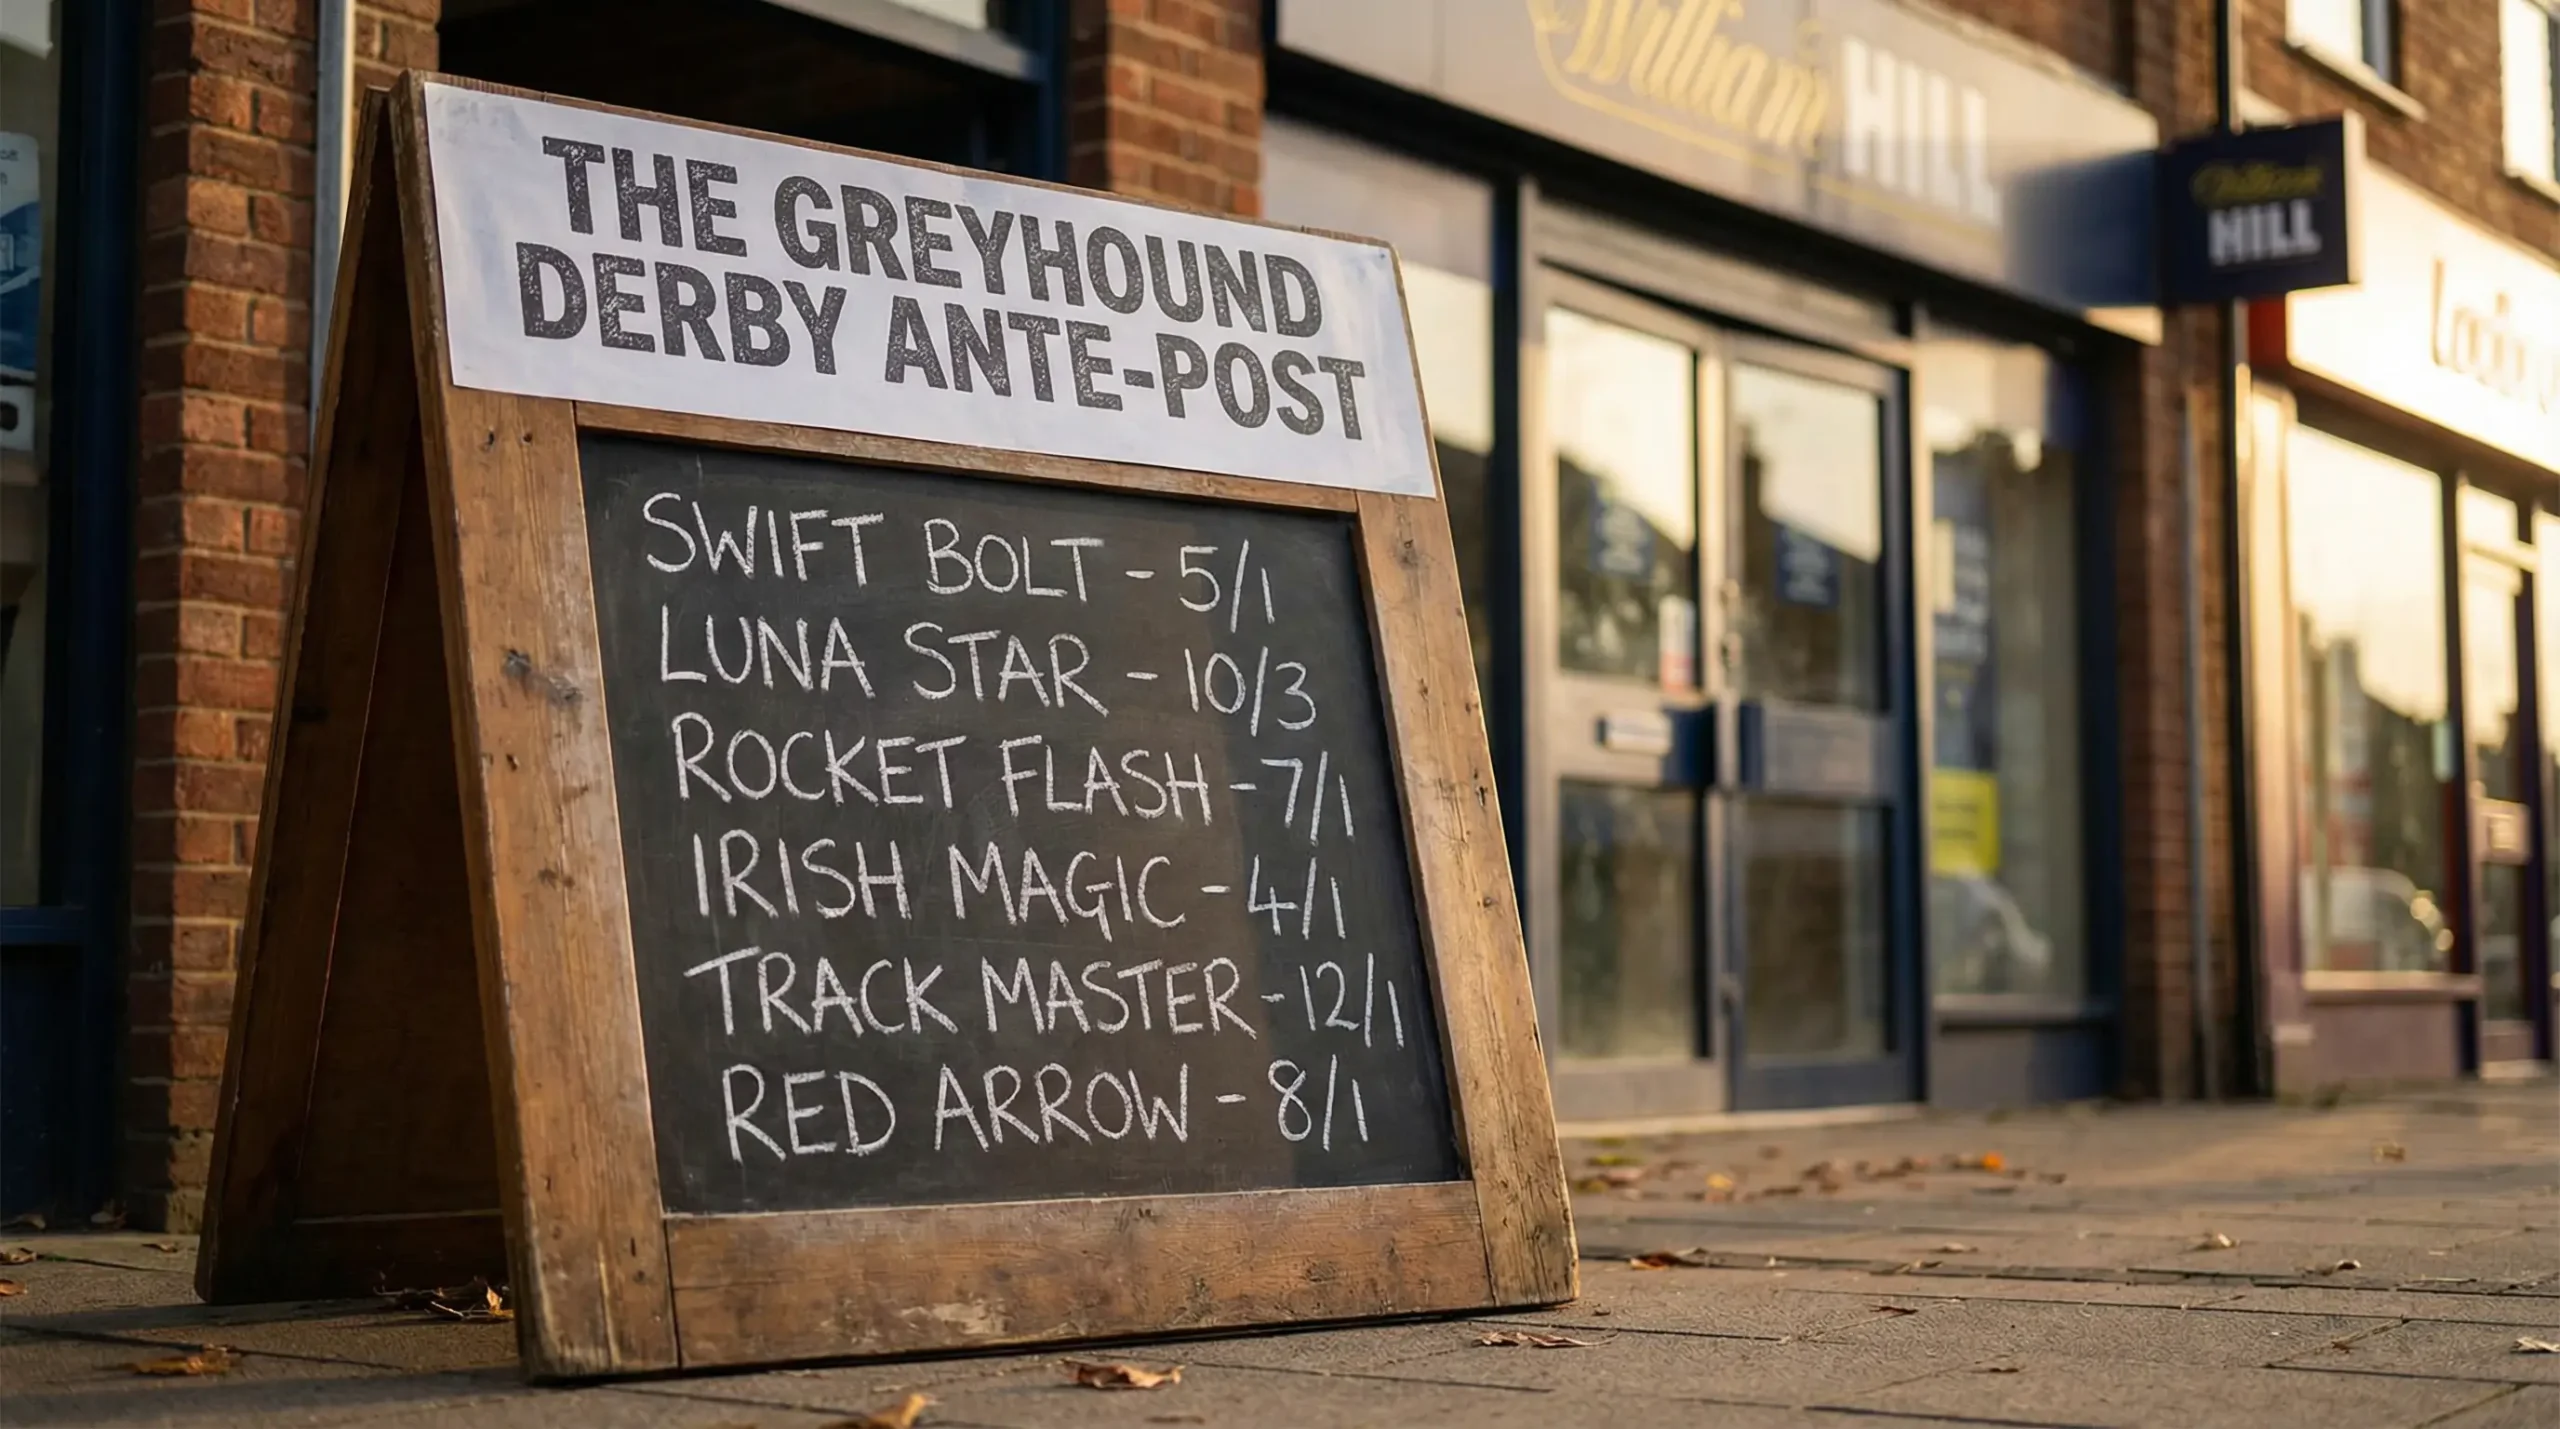 THE GREYHOUND
DERBY ANTE-POST
SWIFT BOLT - 5/1
LUNA STAR - 10/3
ROCKET FLASH - 7/1
IRISH MAGIC - 4/1
TRACK MASTER - 12/1
RED ARROW - 8/1
William HILL
William
HILL